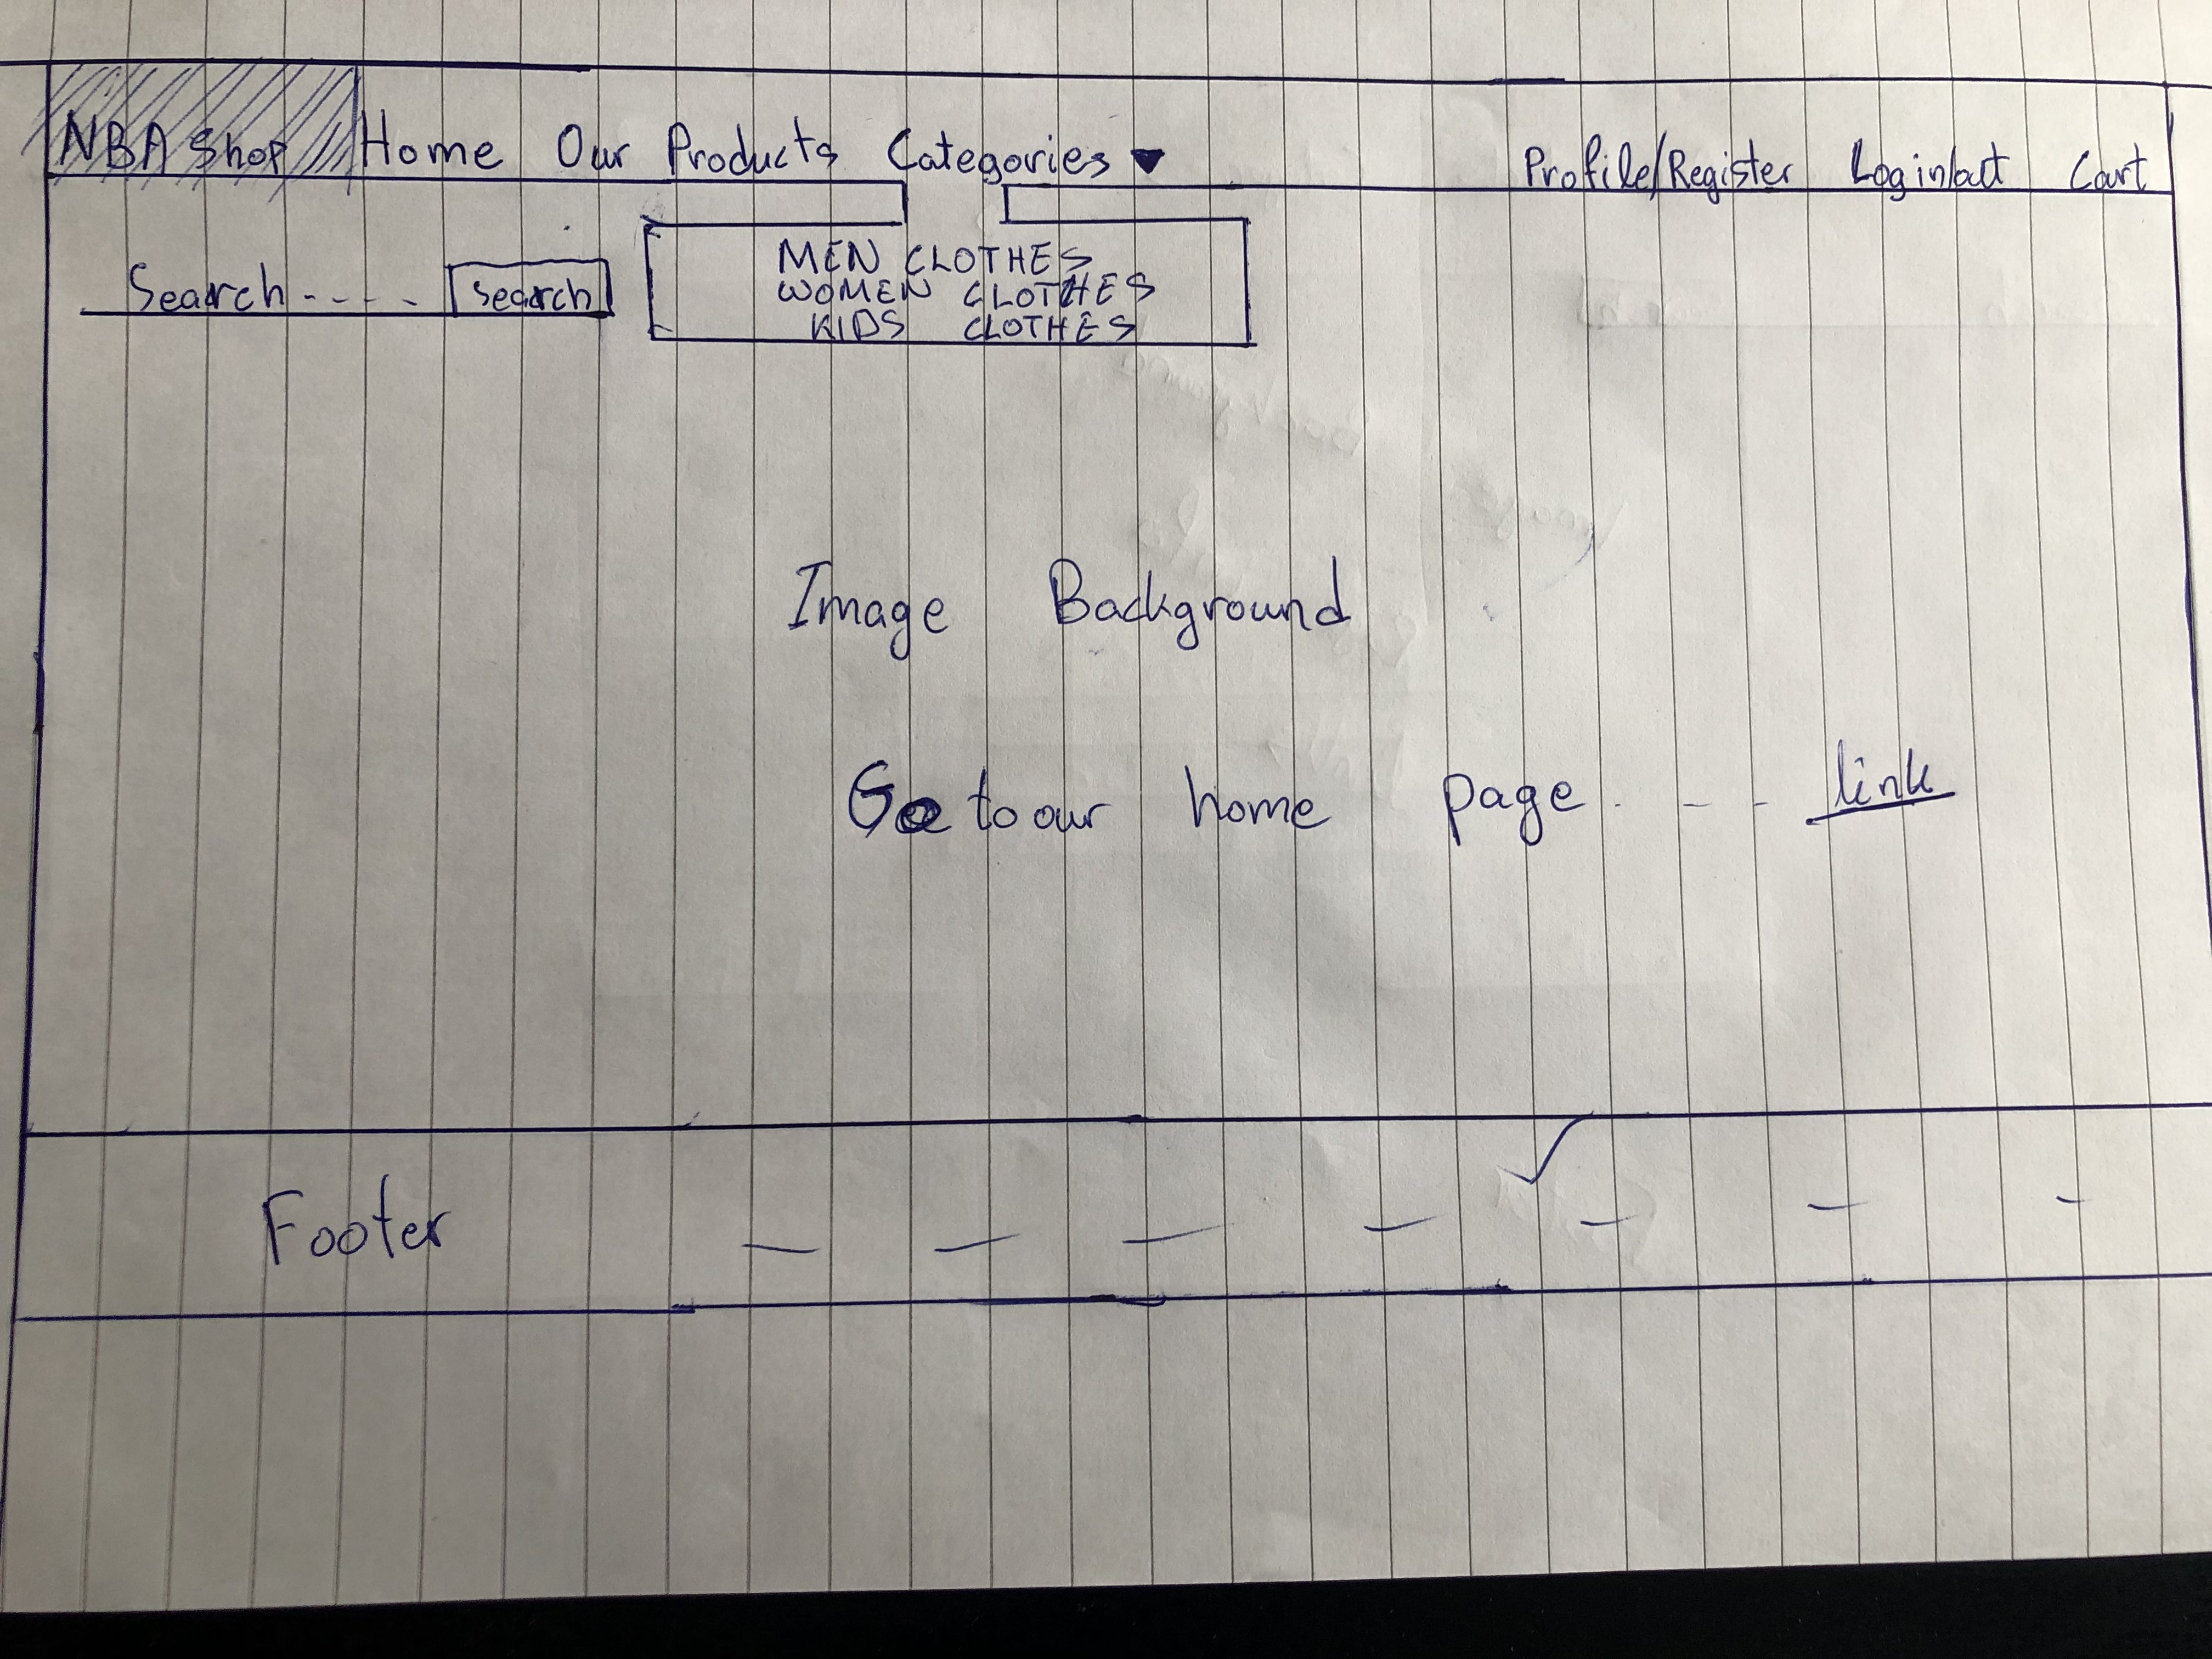 NBA Shop Home Our Products Categories ▼ Profile/Register Login/out Cart
Search - - - - Search
MEN CLOTHES
WOMEN CLOTHES
KIDS CLOTHES
Image Background
Go to our home page . - - link
Footer - - - - - - -